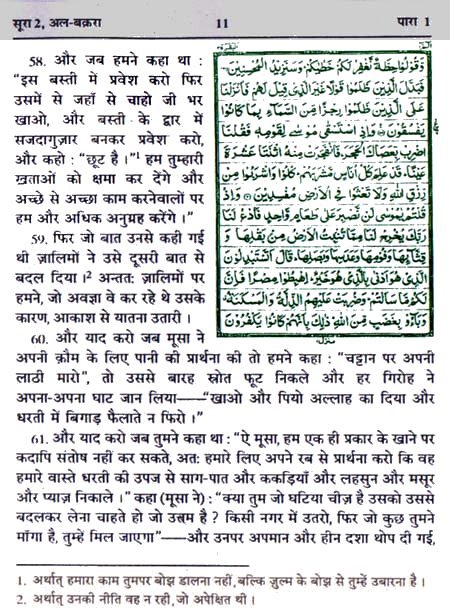 सूरा 2, अल-बक़रा 11 पारा 1
58. और जब हमने कहा था :
“इस बस्ती में प्रवेश करो फिर
उसमें से जहाँ से चाहो जी भर
खाओ, और बस्ती के द्वार में
सजदागुज़ार बनकर प्रवेश करो,
और कहो : “छूट है ।”¹ हम तुम्हारी
ख़ताओं को क्षमा कर देंगे और
अच्छे से अच्छा काम करनेवालों पर
हम और अधिक अनुग्रह करेंगे ।”
59. फिर जो बात उनसे कही गई
थी ज़ालिमों ने उसे दूसरी बात से
बदल दिया ।² अन्ततः ज़ालिमों पर
हमने, जो अवज्ञा वे कर रहे थे उसके
कारण, आकाश से यातना उतारी ।
60. और याद करो जब मूसा ने
وَقُولُوا حِطَّةٌ نَّغْفِرْ لَكُمْ خَطٰيٰكُمْ وَسَنَزِيدُ الْمُحْسِنِينَ
فَبَدَّلَ الَّذِينَ ظَلَمُوا قَوْلًا غَيْرَ الَّذِي قِيلَ لَهُمْ فَأَنزَلْنَا
عَلَى الَّذِينَ ظَلَمُوا رِجْزًا مِّنَ السَّمَاءِ بِمَا كَانُوا
يَفْسُقُونَ وَإِذِ اسْتَسْقَىٰ مُوسَىٰ لِقَوْمِهِ فَقُلْنَا
اضْرِب بِّعَصَاكَ الْحَجَرَ فَانفَجَرَتْ مِنْهُ اثْنَتَا عَشْرَةَ
عَيْنًا قَدْ عَلِمَ كُلُّ أُنَاسٍ مَّشْرَبَهُمْ كُلُوا وَاشْرَبُوا مِن
رِّزْقِ اللَّهِ وَلَا تَعْثَوْا فِي الْأَرْضِ مُفْسِدِينَ وَإِذْ
قُلْتُمْ يٰمُوسَىٰ لَن نَّصْبِرَ عَلَىٰ طَعَامٍ وَاحِدٍ فَادْعُ لَنَا
رَبَّكَ يُخْرِجْ لَنَا مِمَّا تُنبِتُ الْأَرْضُ مِن بَقْلِهَا وَ
قِثَّائِهَا وَفُومِهَا وَعَدَسِهَا وَبَصَلِهَا قَالَ أَتَسْتَبْدِلُونَ
الَّذِي هُوَ أَدْنَىٰ بِالَّذِي هُوَ خَيْرٌ اهْبِطُوا مِصْرًا فَإِنَّ
لَكُم مَّا سَأَلْتُمْ وَضُرِبَتْ عَلَيْهِمُ الذِّلَّةُ وَالْمَسْكَنَةُ
وَبَاءُوا بِغَضَبٍ مِّنَ اللَّهِ ذَٰلِكَ بِأَنَّهُمْ كَانُوا يَكْفُرُونَ
अपनी क़ौम के लिए पानी की प्रार्थना की तो हमने कहा : “चट्टान पर अपनी
लाठी मारो”, तो उससे बारह स्रोत फूट निकले और हर गिरोह ने
अपना-अपना घाट जान लिया—“खाओ और पियो अल्लाह का दिया और
धरती में बिगाड़ फैलाते न फिरो ।”
61. और याद करो जब तुमने कहा था : “ऐ मूसा, हम एक ही प्रकार के खाने पर
कदापि संतोष नहीं कर सकते, अतः हमारे लिए अपने रब से प्रार्थना करो कि वह
हमारे वास्ते धरती की उपज से साग-पात और ककड़ियाँ और लहसुन और मसूर
और प्याज़ निकाले ।” कहा (मूसा ने) : “क्या तुम जो घटिया चीज़ है उसको उससे
बदलकर लेना चाहते हो जो उत्तम है ? किसी नगर में उतरो, फिर जो कुछ तुमने
माँगा है, तुम्हें मिल जाएगा”—और उनपर अपमान और हीन दशा थोप दी गई,
1. अर्थात् हमारा काम तुमपर बोझ डालना नहीं, बल्कि ज़ुल्म के बोझ से तुम्हें उबारना है ।
2. अर्थात् उनकी नीति वह न रही, जो अपेक्षित थी ।